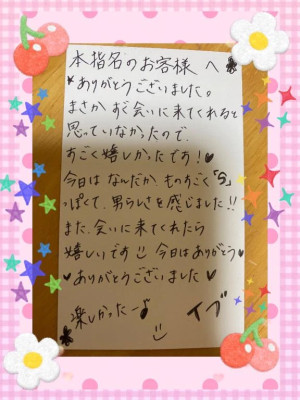 本指名のお客様へ
ありがとうございました。
まさかすぐ会いに来てくれると
思っていなかったので、
すごく嬉しかったです!♥
今日はなんだかものすごく「S」
っぽくて、男らしさを感じました!!
また、会いに来てくれたら
嬉しいです 今日はありがとう♥
♥ありがとうございました♥
楽しかったー♪ イブ